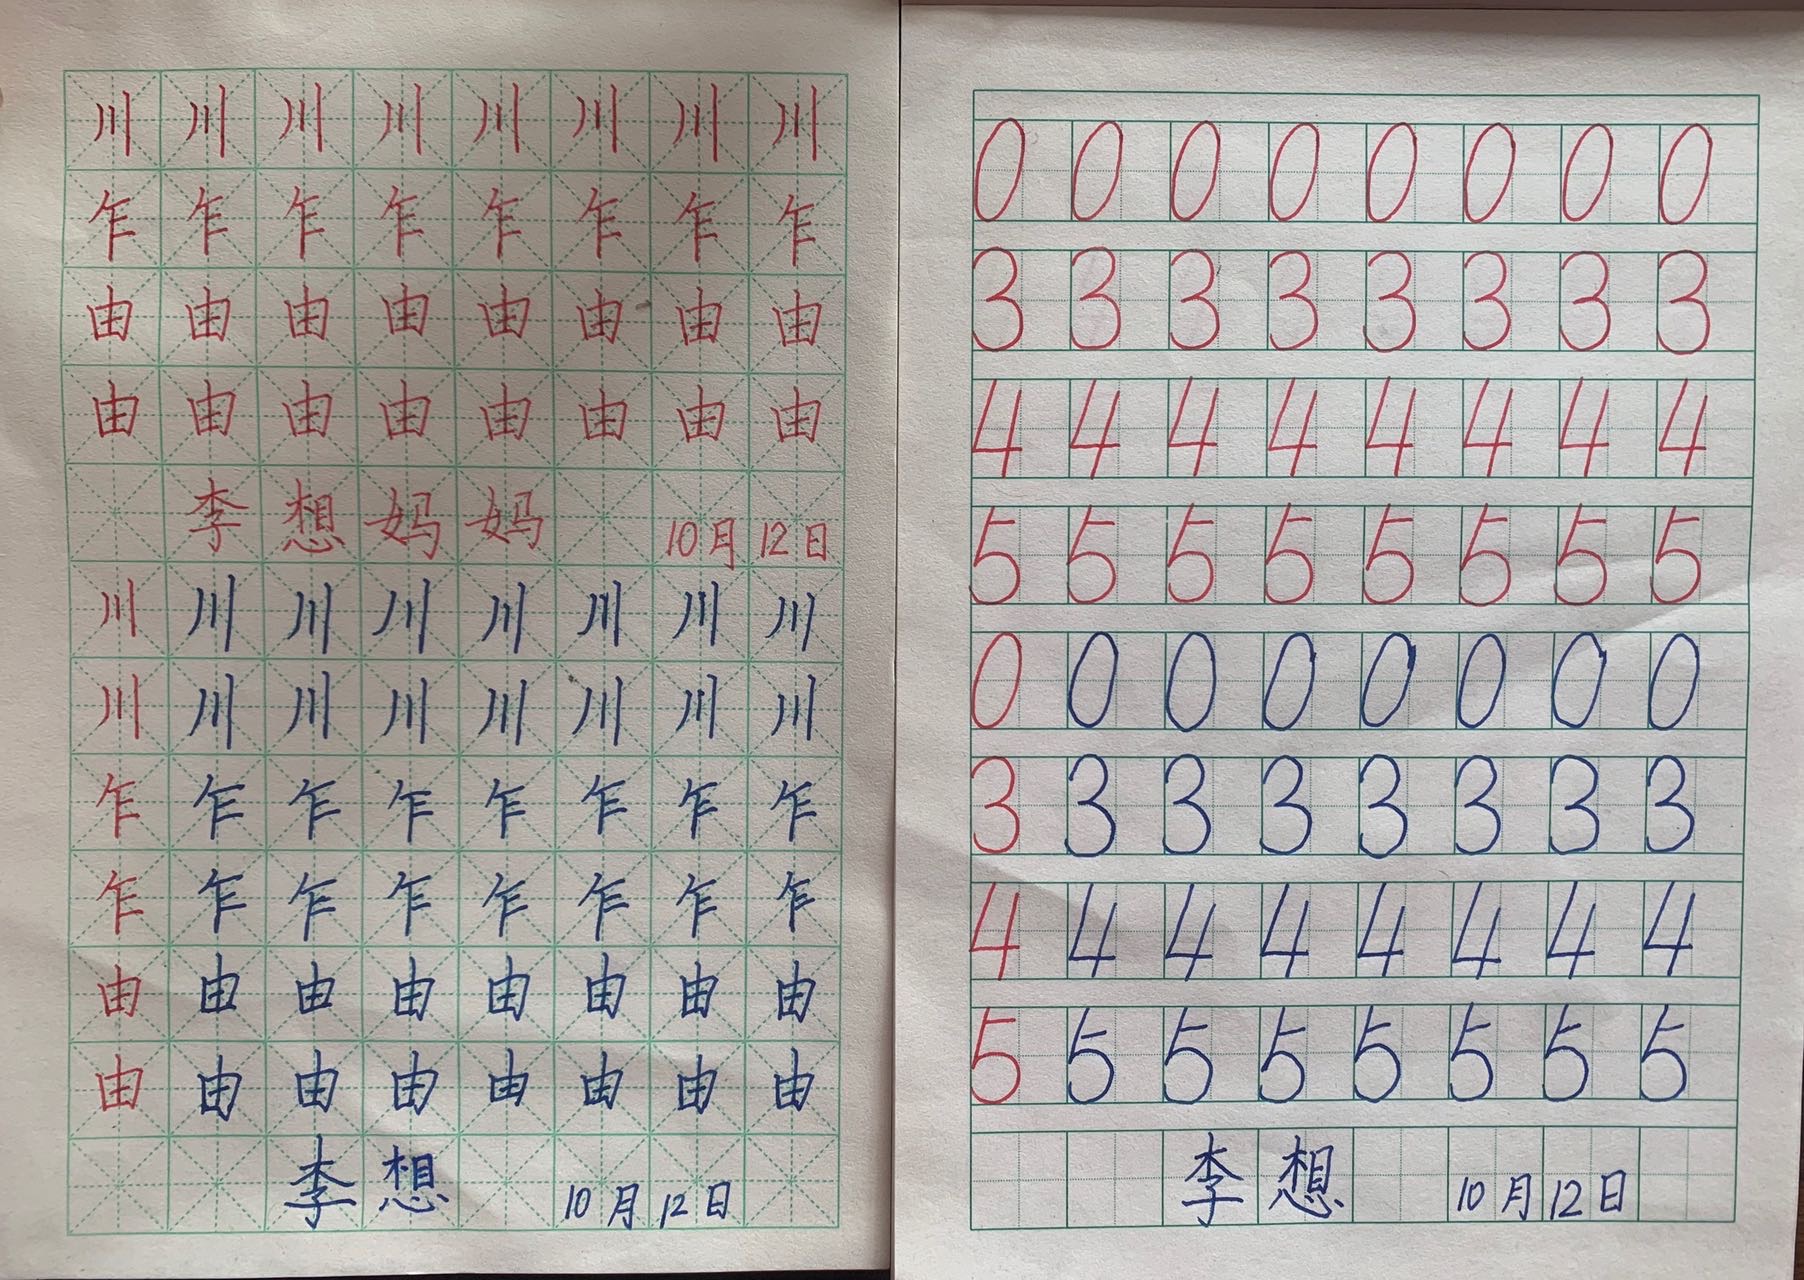 川川川川川川川川
乍乍乍乍乍乍乍乍
由由由由由由由由
由由由由由由由由
李想妈妈 10月12日
川川川川川川川川
川川川川川川川川
乍乍乍乍乍乍乍乍
乍乍乍乍乍乍乍乍
由由由由由由由由
由由由由由由由由
李想 10月12日
0 0 0 0 0 0 0 0
3 3 3 3 3 3 3 3
4 4 4 4 4 4 4 4
5 5 5 5 5 5 5 5
0 0 0 0 0 0 0 0
3 3 3 3 3 3 3 3
4 4 4 4 4 4 4 4
5 5 5 5 5 5 5 5
李想 10月12日